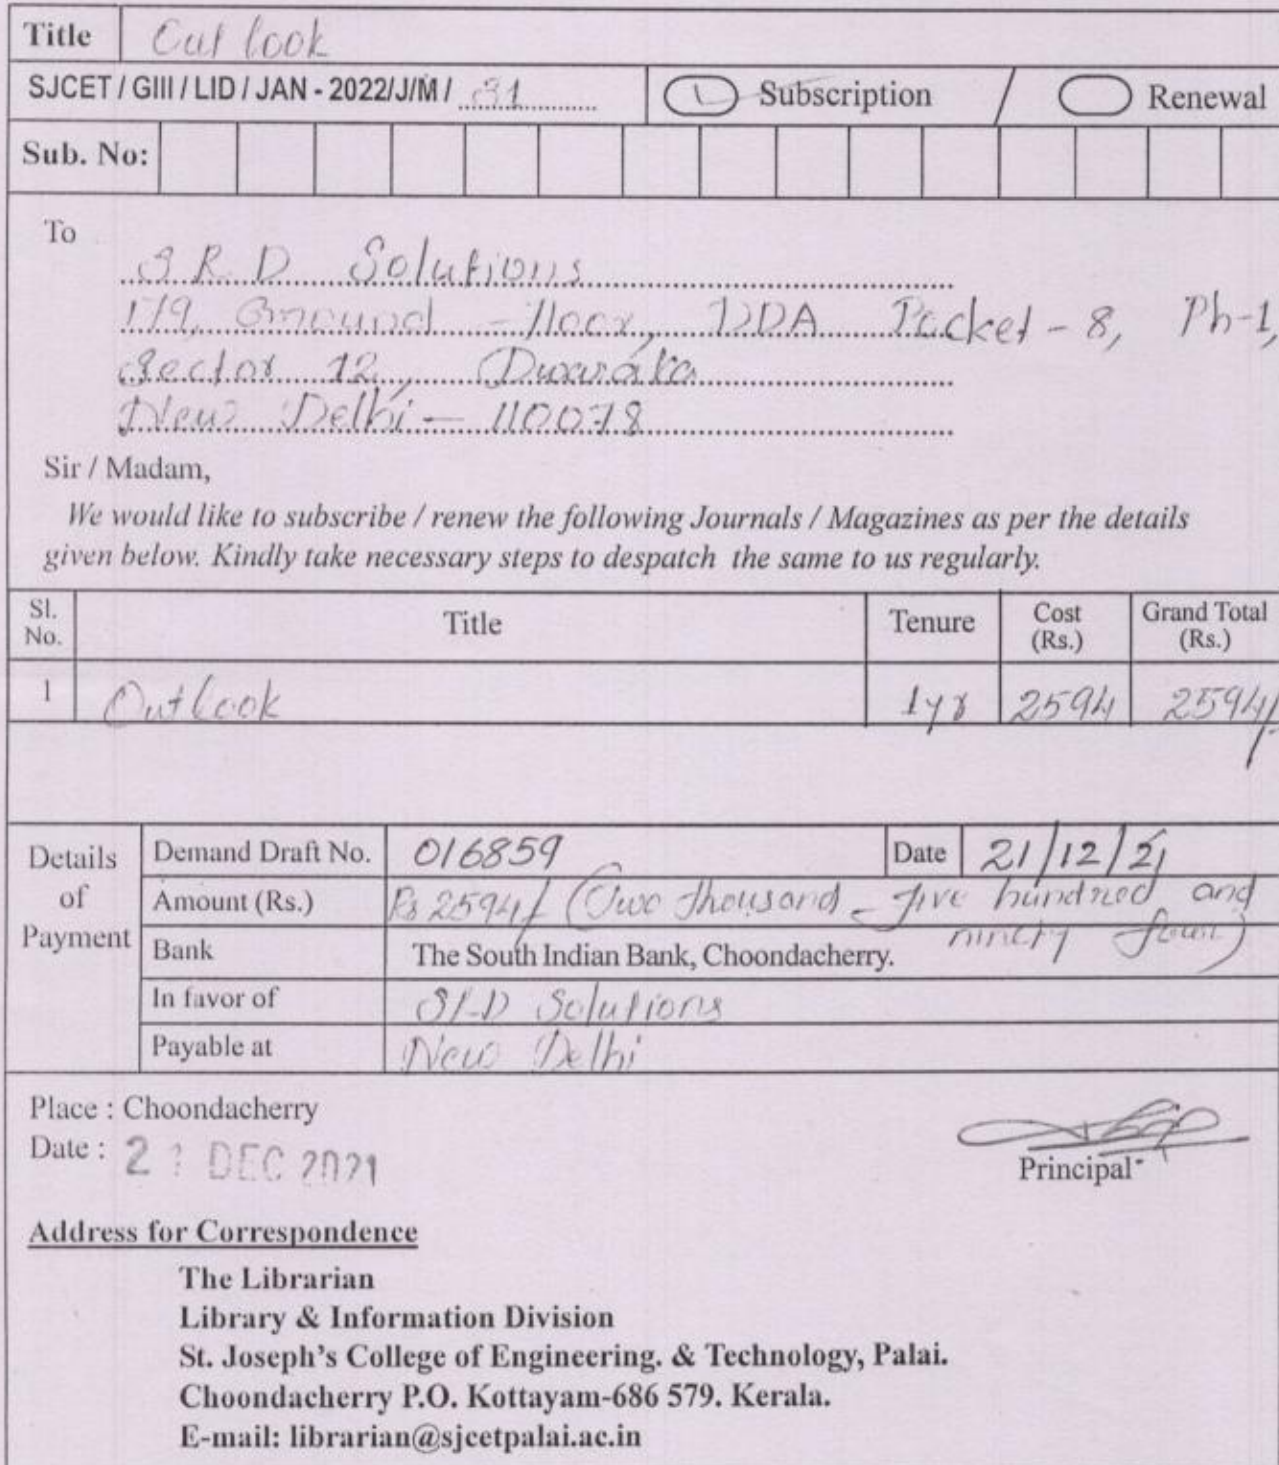 Title Outlook
SJCET / GIII / LID / JAN - 2022/J/M/ 31 Subscription / Renewal
Sub. No:
To
S R D Solutions
179, Ground floor, DDA Pocket - 8, Ph-1,
Sector 12, Dwaraka
New Delhi - 110078
Sir / Madam,
We would like to subscribe / renew the following Journals / Magazines as per the details
given below. Kindly take necessary steps to despatch the same to us regularly.
Sl. No. Title Tenure Cost (Rs.) Grand Total (Rs.)
1 Outlook 1yr 2594 2594/-
Details of Payment
Demand Draft No. 016859 Date 21/12/21
Amount (Rs.) Rs 2594/- (Two thousand five hundred and
ninety four)
Bank The South Indian Bank, Choondacherry.
In favor of Solutions
Payable at New Delhi
Place : Choondacherry
Date : 21 DEC 2021
Principal
Address for Correspondence
The Librarian
Library & Information Division
St. Joseph's College of Engineering. & Technology, Palai.
Choondacherry P.O. Kottayam-686 579. Kerala.
E-mail: librarian@sjcetpalai.ac.in